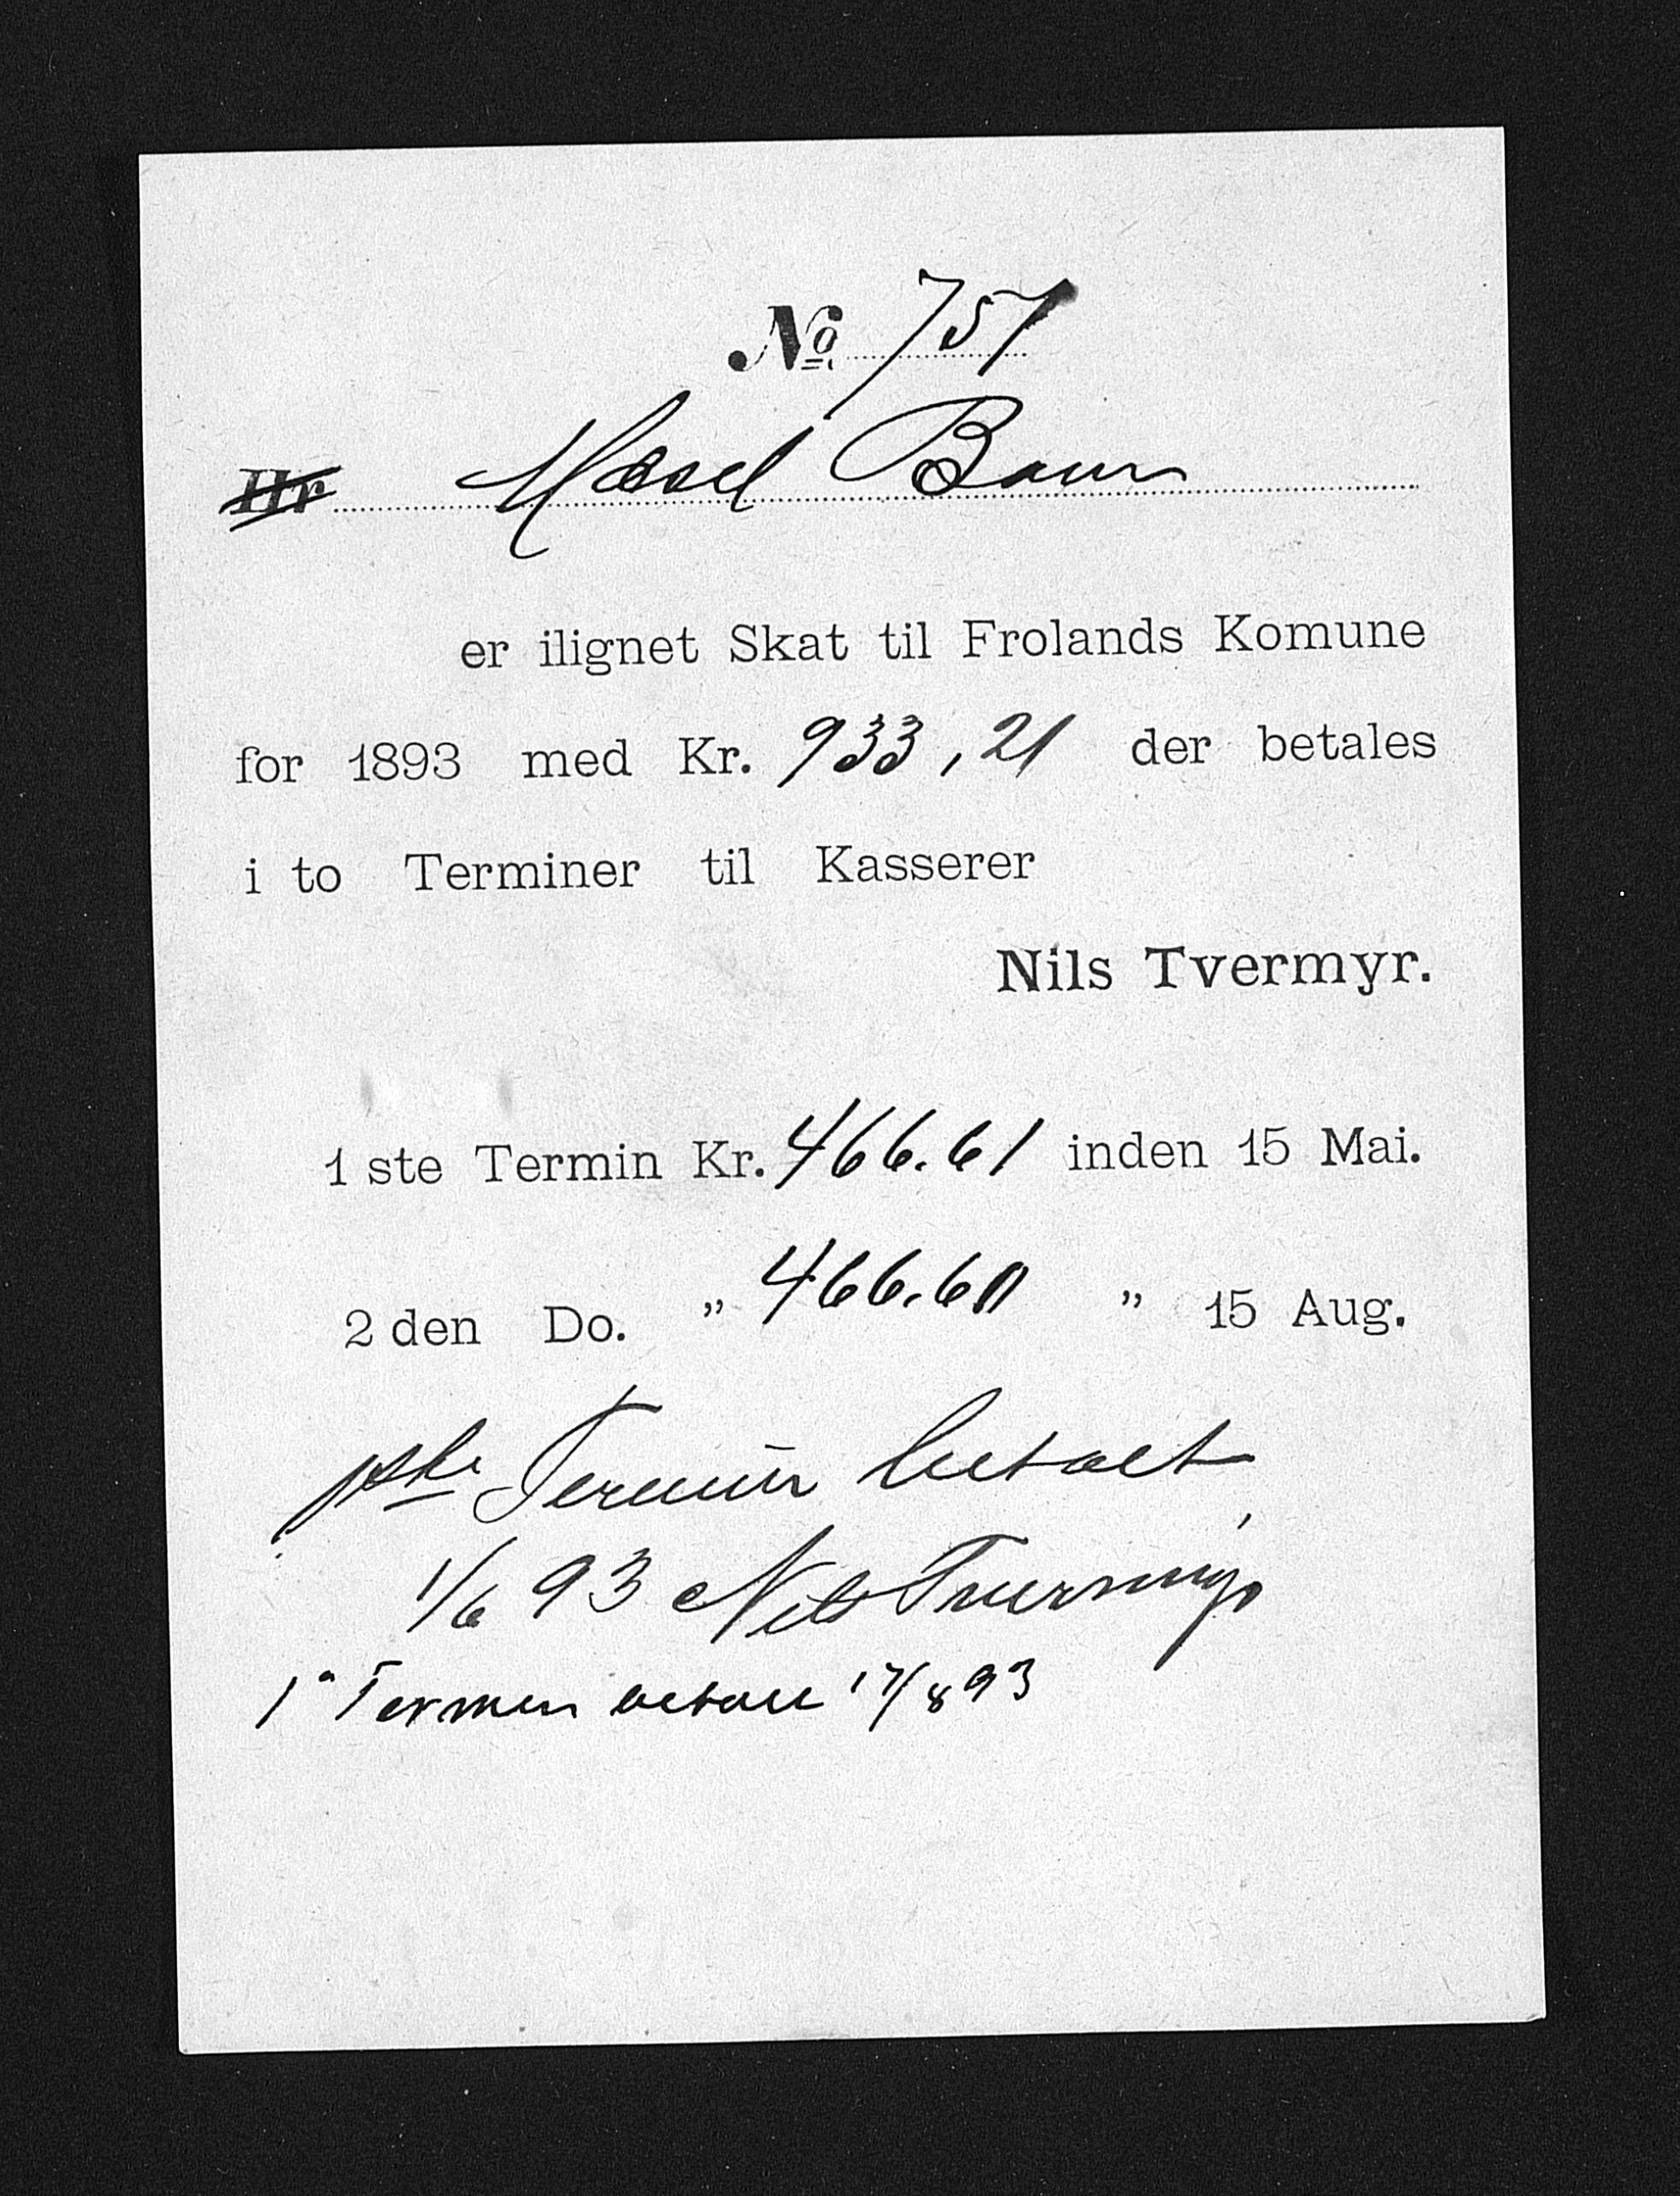 No 757
Hr Næsel Brug
er ilignet Skat til Frolands Komune
for 1893 med Kr. 933,21 der betales
i to Terminer til Kasserer
Nils Tvermyr.
1 ste Termin Kr. 466.61 inden 15 Mai.
2 den Do. " 466.60 " 15 Aug.
1ste Termin betalt
1/6 93 Nils Tvermyr
Termin betalt 17/8 93